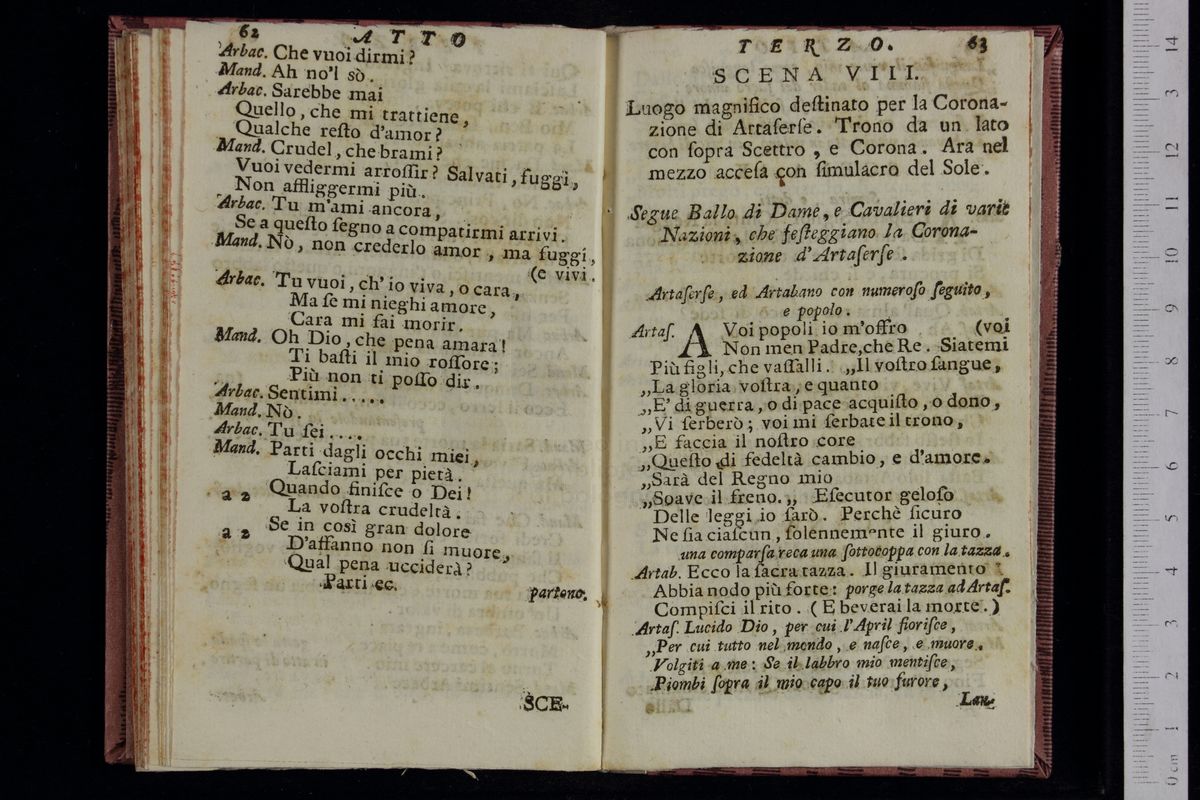 62 ATTO
Arbac. Che vuoi dirmi?
Mand. Ah no'l sò.
Arbac. Sarebbe mai
Quello, che mi trattiene,
Qualche reſto d'amor?
Mand. Crudel, che brami?
Vuoi vedermi arroſſir? Salvati, fuggi,
Non affliggermi più.
Arbac. Tu m'ami ancora,
Se a queſto ſegno a compatirmi arrivi.
Mand. Nò, non crederlo amor, ma fuggi,
(e vivi.
Arbac. Tu vuoi, ch'io viva, o cara,
Ma ſe mi nieghi amore,
Cara mi fai morir.
Mand. Oh Dio, che pena amara!
Ti baſti il mio roſſore;
Più non ti poſſo dir.
Arbac. Sentimi.....
Mand. Nò.
Arbac. Tu ſei....
Mand. Parti dagli occhi miei,
Laſciami per pietà.
a 2 Quando finiſce o Dei!
La voſtra crudeltà.
a 2 Se in così gran dolore
D'affanno non ſi muore,
Qual pena ucciderà?
Parti ec. partono.
SCE-
TERZO. 63
SCENA VIII.
Luogo magnifico deſtinato per la Corona-
zione di Artaſerſe. Trono da un lato
con ſopra Scettro, e Corona. Ara nel
mezzo acceſa con ſimulacro del Sole.
Segue Ballo di Dame, e Cavalieri di varie
Nazioni, che feſteggiano la Corona-
zione d'Artaſerſe.
Artaſerſe, ed Artabano con numeroſo ſeguito,
e popolo.
Artaſ. A Voi popoli io m'offro (voi
Non men Padre, che Re. Siatemi
Più figli, che vaſſalli. „Il voſtro ſangue,
„La gloria voſtra, e quanto
„E' di guerra, o di pace acquiſto, o dono,
„Vi ſerberò; voi mi ſerbate il trono,
„E faccia il noſtro core
„Queſto di fedeltà cambio, e d'amore.
„Sarà del Regno mio
„Soave il freno.„ Eſecutor geloſo
Delle leggi io ſarò. Perchè ſicuro
Ne ſia ciaſcun, ſolennemente il giuro.
una comparſa reca una ſottocoppa con la tazza.
Artab. Ecco la ſacra tazza. Il giuramento
Abbia nodo più forte: porge la tazza ad Artaſ.
Compiſci il rito. (E beverai la morte.)
Artaſ. Lucido Dio, per cui l'April fioriſce,
„Per cui tutto nel mondo, e naſce, e muore.
Volgiti a me: Se il labbro mio mentiſce,
Piombi ſopra il mio capo il tuo furore,
Lan-
14
13
12
11
10
9
8
7
6
5
4
3
2
1
0 cm